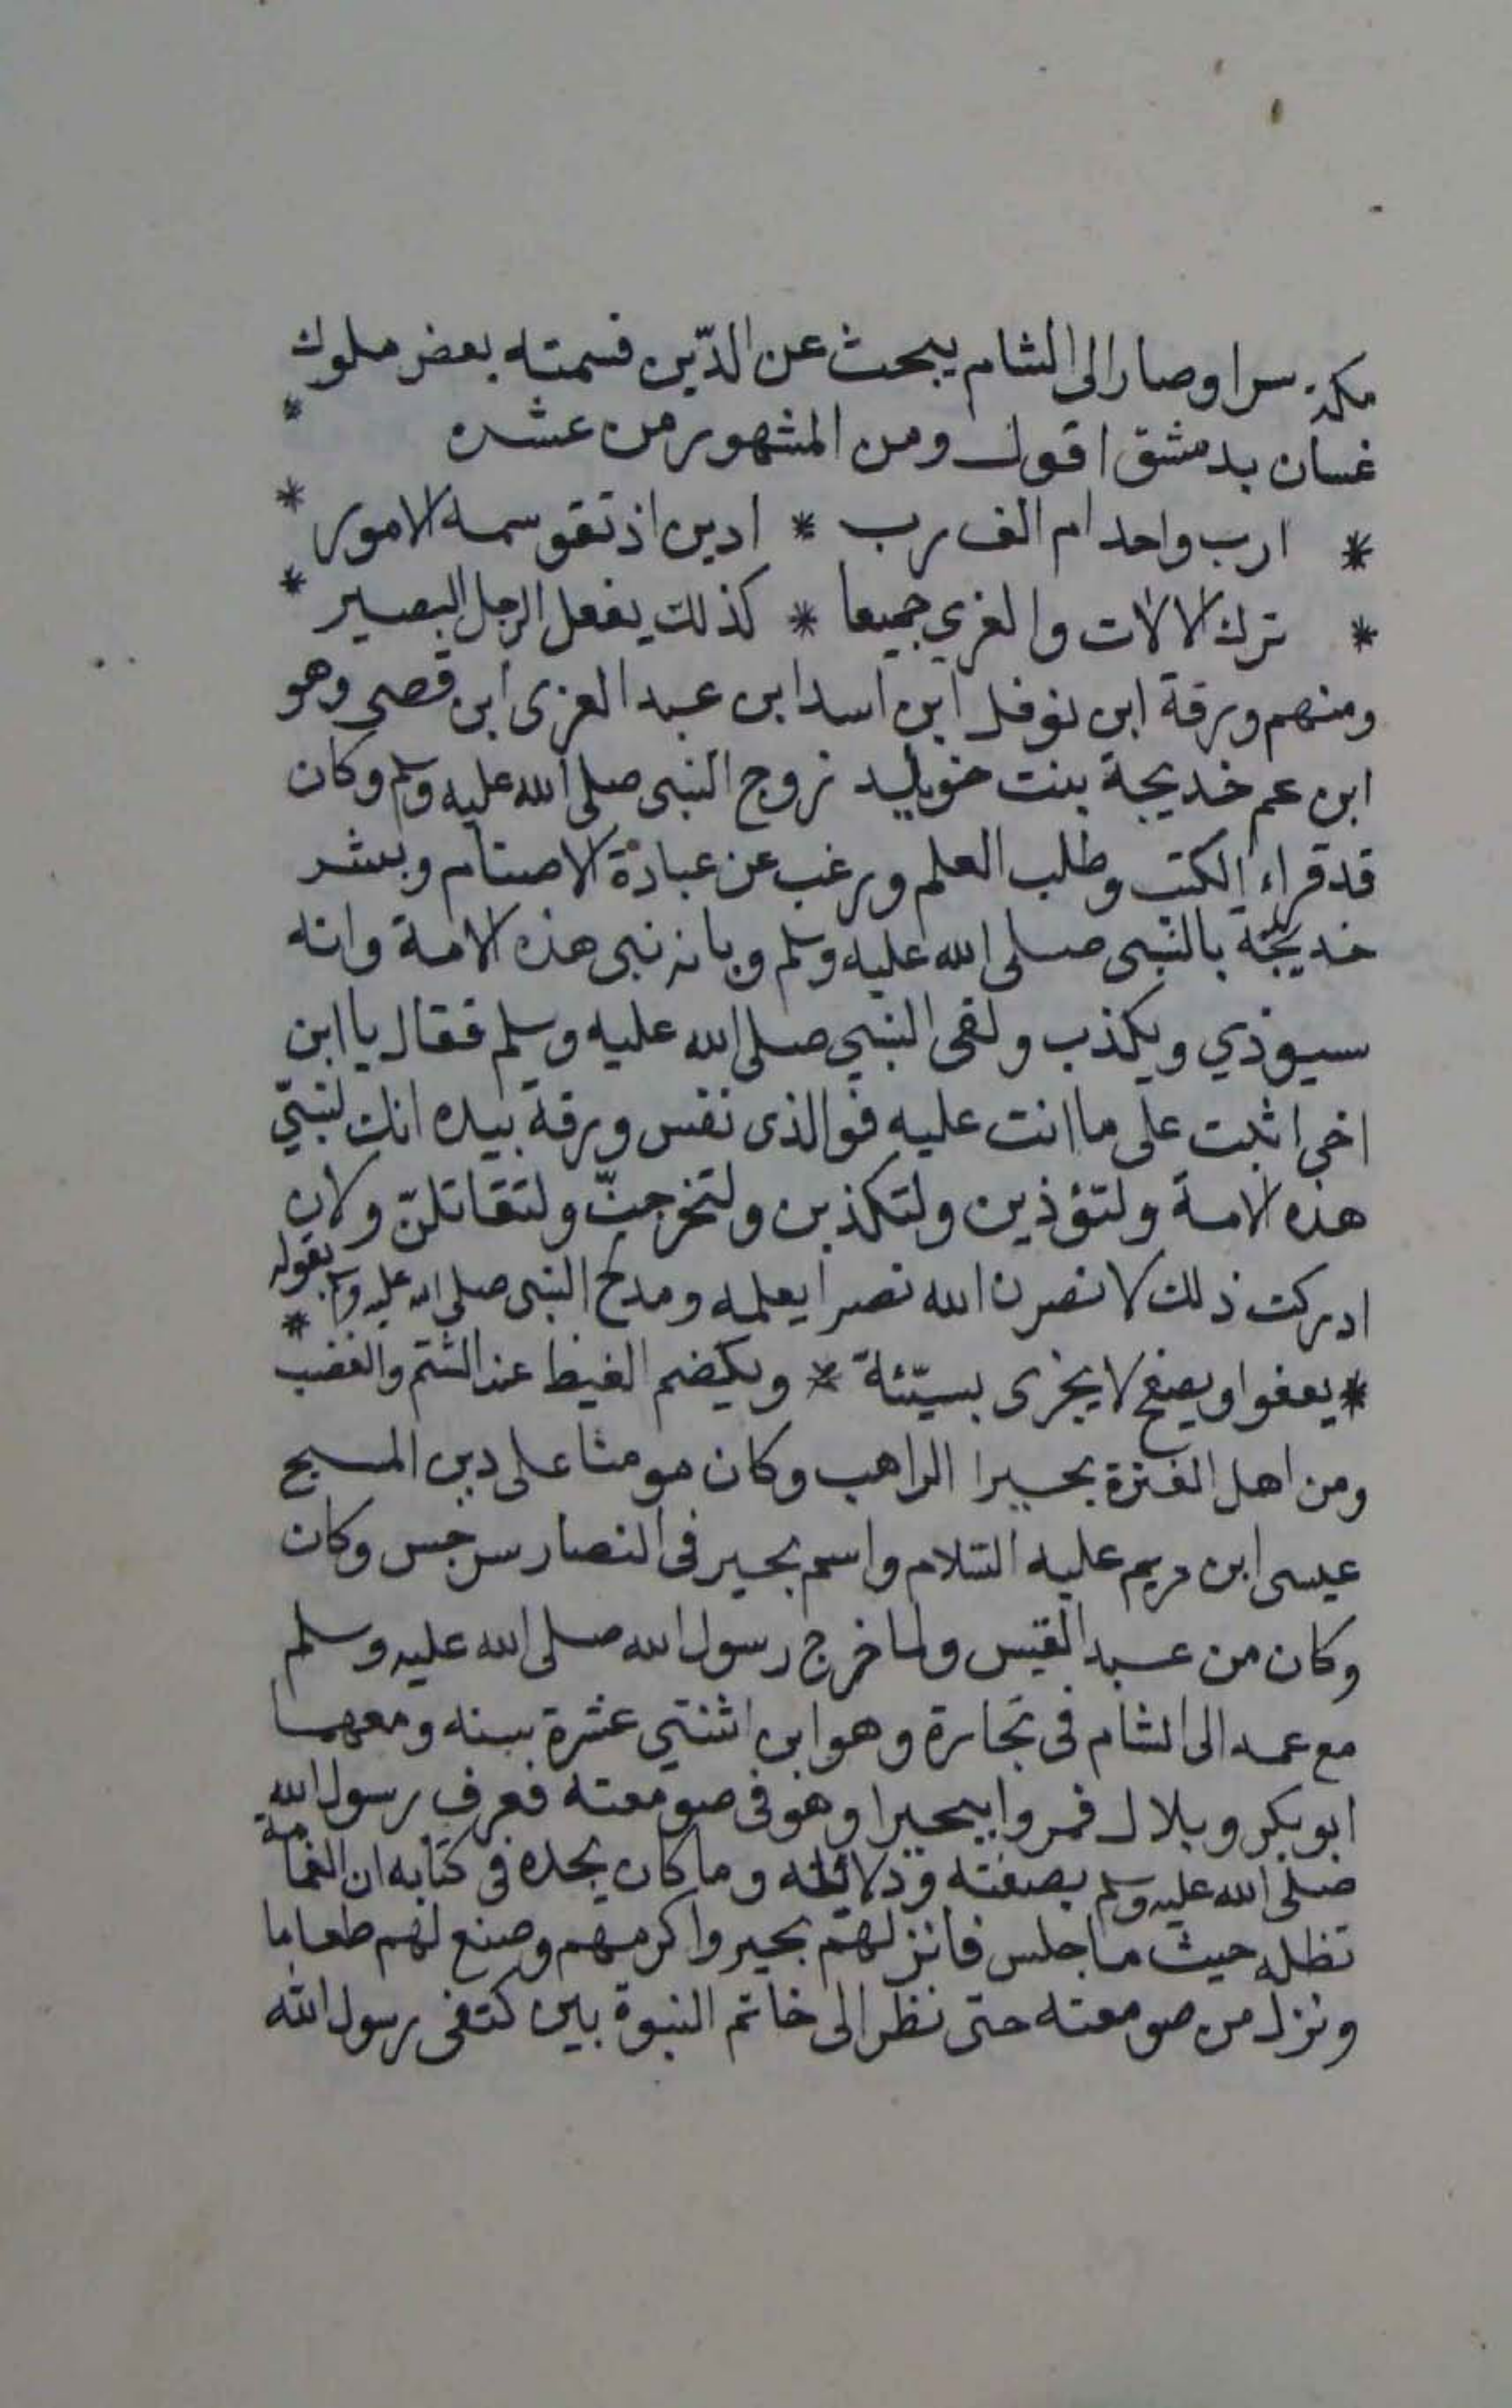 مكة سرا وصار الى الشام يبحث عن الدّين فسمته بعض ملوك
غسان بدمشق اقول ومن المشهور من عشره *
* ارب واحد ام الف رب * ادين اذ تقوسمه الامور *
* ترك الالات والغرى جميعا * كذلك يفعل الرجل البصير *
ومنهم ورقة ابن نوفل ابن اسد ابن عبد العزى ابن قصى وهو
ابن عم خديجة بنت خويلد زوج النبى صلى الله عليه وسلم وكان
قد قراء الكتب وطلب العلم ورغب عن عبادة الاصنام وبشر
خديجة بالنبى صلى الله عليه وسلم وبانه نبى هذه الامة وانه
سيوذي ويكذب ولقى النبي صلى الله عليه وسلم فقال يا ابن
اخى اثبت على ما انت عليه فوالذى نفس ورقة بيده انك لنبيّ
هذه الامة ولتؤذين ولتكذبن ولتخرجنّ ولتقاتلنّ ولان
ادركت ذلك لانصرن الله نصرا يعلمه ومدح النبى صلى الله عليه وسلم بقوله *
* يعفوا ويصفح لا يجزى بسيّئة * ويكيضم الغيظ عند الشتم والغضب
ومن اهل الفترة بحيرا الراهب وكان مومنا على دين المسيح
عيسى ابن مريم عليه السّلام واسم بحير فى النصار سرجس وكان
وكان من عبد القيس ولما خرج رسول الله صلى الله عليه وسلم
مع عمه الى الشام فى تجارة وهو ابن اثنتي عشرة سنه ومعهما
ابو بكر وبلال فمروا ببحيرا وهو فى صومعته فعرف رسول الله
صلى الله عليه وسلم بصفته ودلائله وما كان يجده فى كتابه ان الغمامة
تظله حيث ما جلس فانزلهم بحير واكرمهم وصنع لهم طعاما
ونزل من صومعته حتى نظر الى خاتم النبوة بين كتفى رسول الله